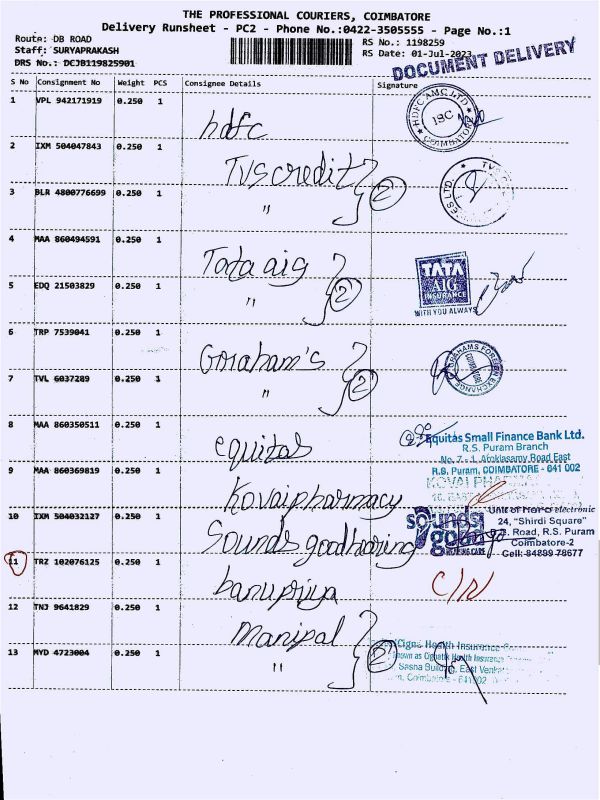 THE PROFESSIONAL COURIERS, COIMBATORE
Delivery Runsheet - PC2 - Phone No.:0422-3505555 - Page No.:1
Route: DB ROAD
RS No.: 1198259
Staff: SURYAPRAKASH
RS Date: 01-Jul-2023
DRS No.: DCJB119825901
DOCUMENT DELIVERY
S No Consignment No Weight PCS Consignee Details Signature
1 VPL 942171919 0.250 1 hdfc
HDFC AMC LTD
ISC
COIMBATORE
2 IXM 504047843 0.250 1 TVS credit 2
3 BLR 4800776699 0.250 1 "
4 MAA 860494591 0.250 1 Tata aig 2
TATA
AIG
INSURANCE
WITH YOU ALWAYS
5 EDQ 21503829 0.250 1 "
6 TRP 7539041 0.250 1 Graham's 2
GRAHAMS FOREIGN EXCHANGE
COIMBATORE
7 TVL 6037289 0.250 1 "
8 MAA 860350511 0.250 1 equitas
Equitas Small Finance Bank Ltd.
R.S. Puram Branch
No. 7 - 1, Arokiasamy Road East
R.S. Puram, COIMBATORE - 641 002
9 MAA 860369819 0.250 1 Kovaipharmacy
KOVAI
10 IXM 504032127 0.250 1 Sounds goodhearing
sounds good
Unit of Hero electronic
24, "Shirdi Square"
Road, R.S. Puram
Coimbatore-2
Cell: 84899 78677
11 TRZ 102076125 0.250 1 banupriya C/R/
12 TNJ 9641829 0.250 1 Manipal 2
Cigna Health Insurance
13 MYD 4723004 0.250 1 "